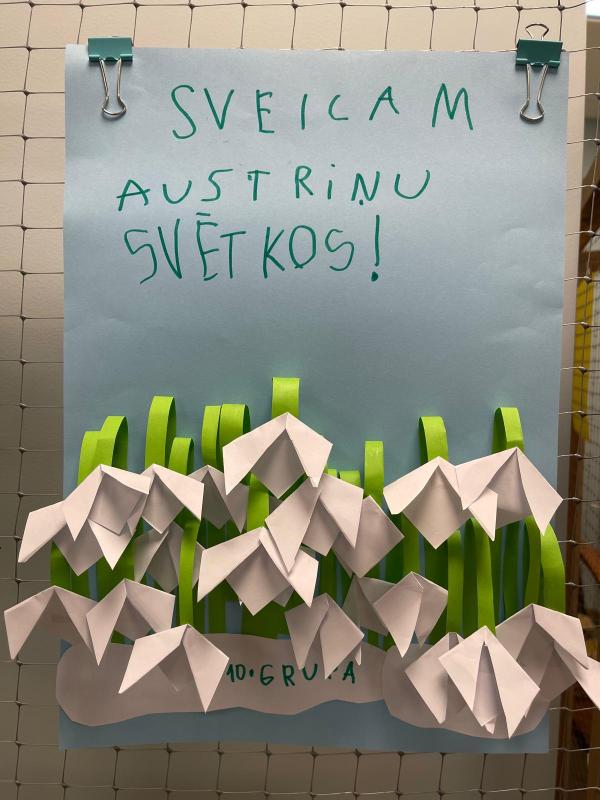 SVEICAM
AUSTRIŅU
SVĒTKOS!
10. GRUPA